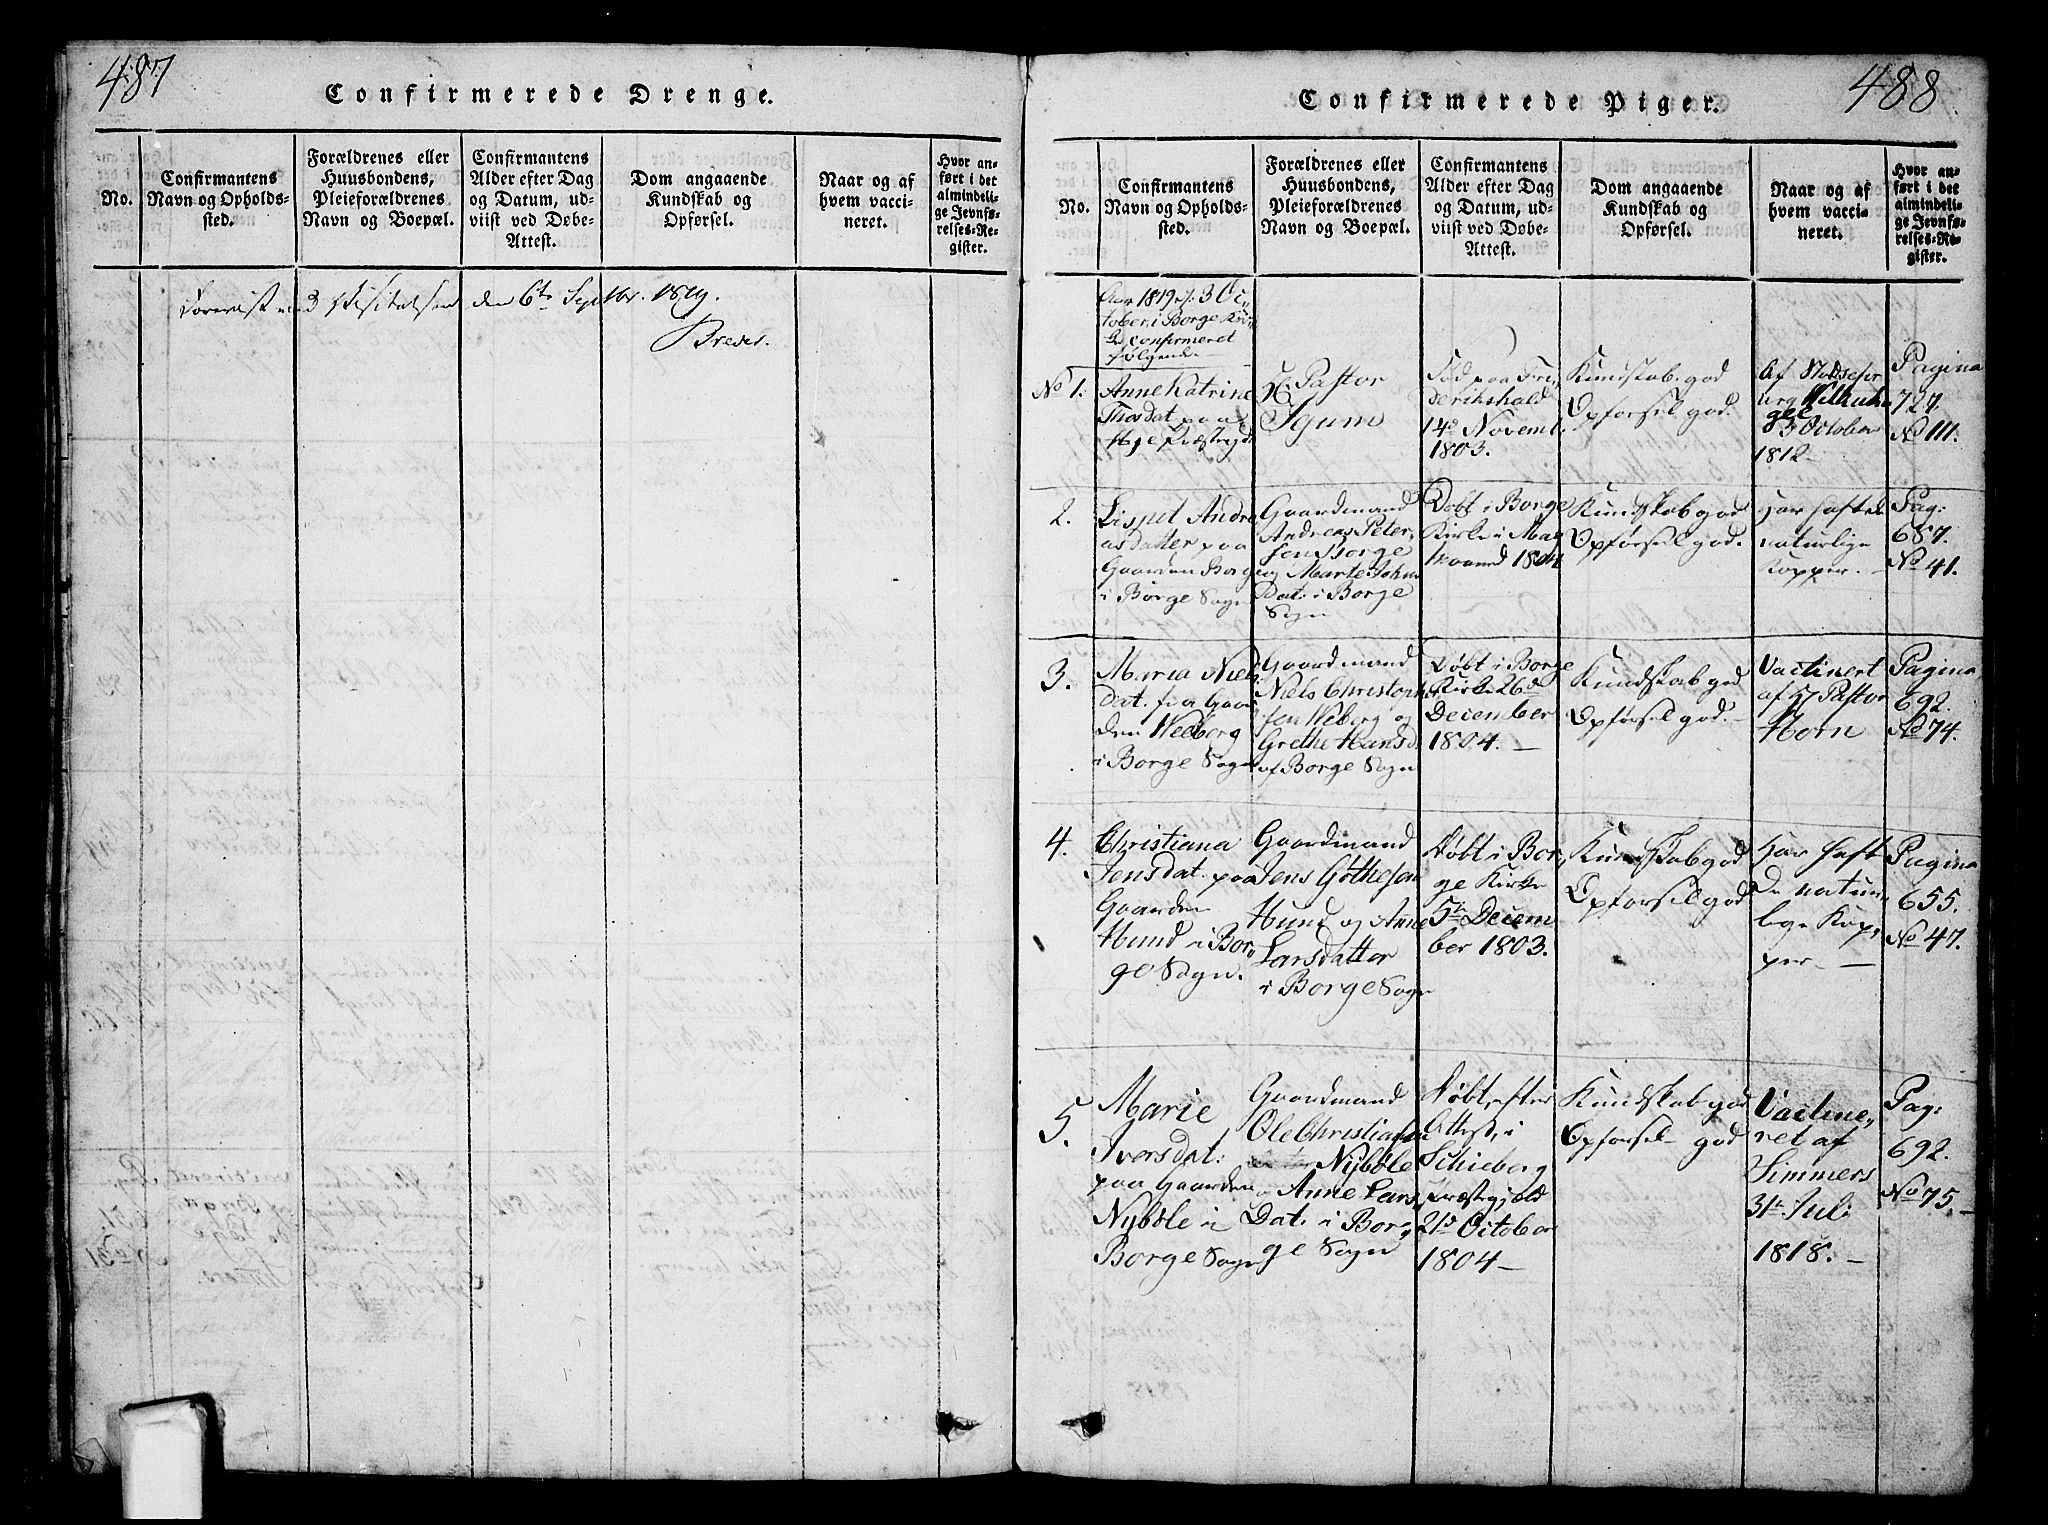 487
Confirmerede Drenge.
No.
Confirmantens
Navn og Opholds-
sted.
Forældrenes eller
Huusbondens,
Pleieforældrenes
Navn og Boepæl.
Confirmantens
Alder efter Dag
og Datum, ud-
viist ved Døbe-
Attest.
Dom angaaende
Kundskab og
Opførsel.
Naar og af
hvem vacci-
neret.
Hvor an-
ført i det
almindeli-
ge Jevnfø-
relses-Re-
gister.
Foreviist ved Visitatsen den 6te Septbr. 1819.
488
Confirmerede Piger.
No.
Confirmantens
Navn og Opholds-
sted.
Forældrenes eller
Huusbondens,
Pleieforældrenes
Navn og Boepæl.
Confirmantens
Alder efter Dag
og Datum, ud-
viist ved Døbe-
Attest.
Dom angaaende
Kundskab og
Opførsel.
Naar og af
hvem vacci-
neret.
Hvor an-
ført i det
almindeli-
ge Jevnfø-
relses-Re-
gister.
Aar 1819 d. 3 Oc„
tober i Borge Kir„
ke confirmeret
følgende
No 1.
Anne Katrine
Thosdat paa
Præstegd.
Hr Pastor
Igum
Fød paa Fre„
derikshald
14de Novemb.
1803.
Kundskab god
Opførsel god.
Af
3 October
1812
Pagina
727.
No 111.
2.
Lisbet Andre
asdatter paa
Gaarden Borge
i Borge Sogn
Gaardmand
Andreas Peter„
sen Borge
og Marte Johns
Dat. i Borge
Sogn
Døbt i Borge
Kirke i May
maaned 1804
Kundskab god
Opførsel god.
Har haft de
naturlige
Kopper.
Pag:
687.
No 41.
3.
Maria Niels
Dat. paa Gaar
den Weeberg
i Borge Sogn
Gaardmand
Niels Christoph
sen Weberg og
Grethe Hansd.
af Borge Sogn
Døbt i Borge
Kirke 26de
December
1804.
Kundskab god
Opførsel god.
Vactinert
af Hr Pastor
Horn
Pagina
692.
No 74.
4.
Christiana
Jensdat. paa
Gaarden
Hund i Bor„
ge Sogn.
Gaardmand
Jens Gøthesen
Hund og Anne
Larsdatter
i Borge Sogn
Døbt i Bor„
ge Kirke
5te Decem
ber 1803.
Kundskab god
Opførsel god
Har haft
De natur„
lige Kop„
per.
Pagina
655.
No 47.
5.
Marie
Iversdat:
paa Gaarden
Nybøle i
Borge Sogn
Gaardmand
Ole Christiansen
Nybøle
og Anne Lars„
Dat. i Bor„
ge Sogn
Døbt, efter
Attest, i
Schieberg
Præstegjeld
21de October
1804
Kundskab god
Opførsel god
Vactine„
ret af
Simmers
31te Juli
1818.
Pag:
692.
No 75.